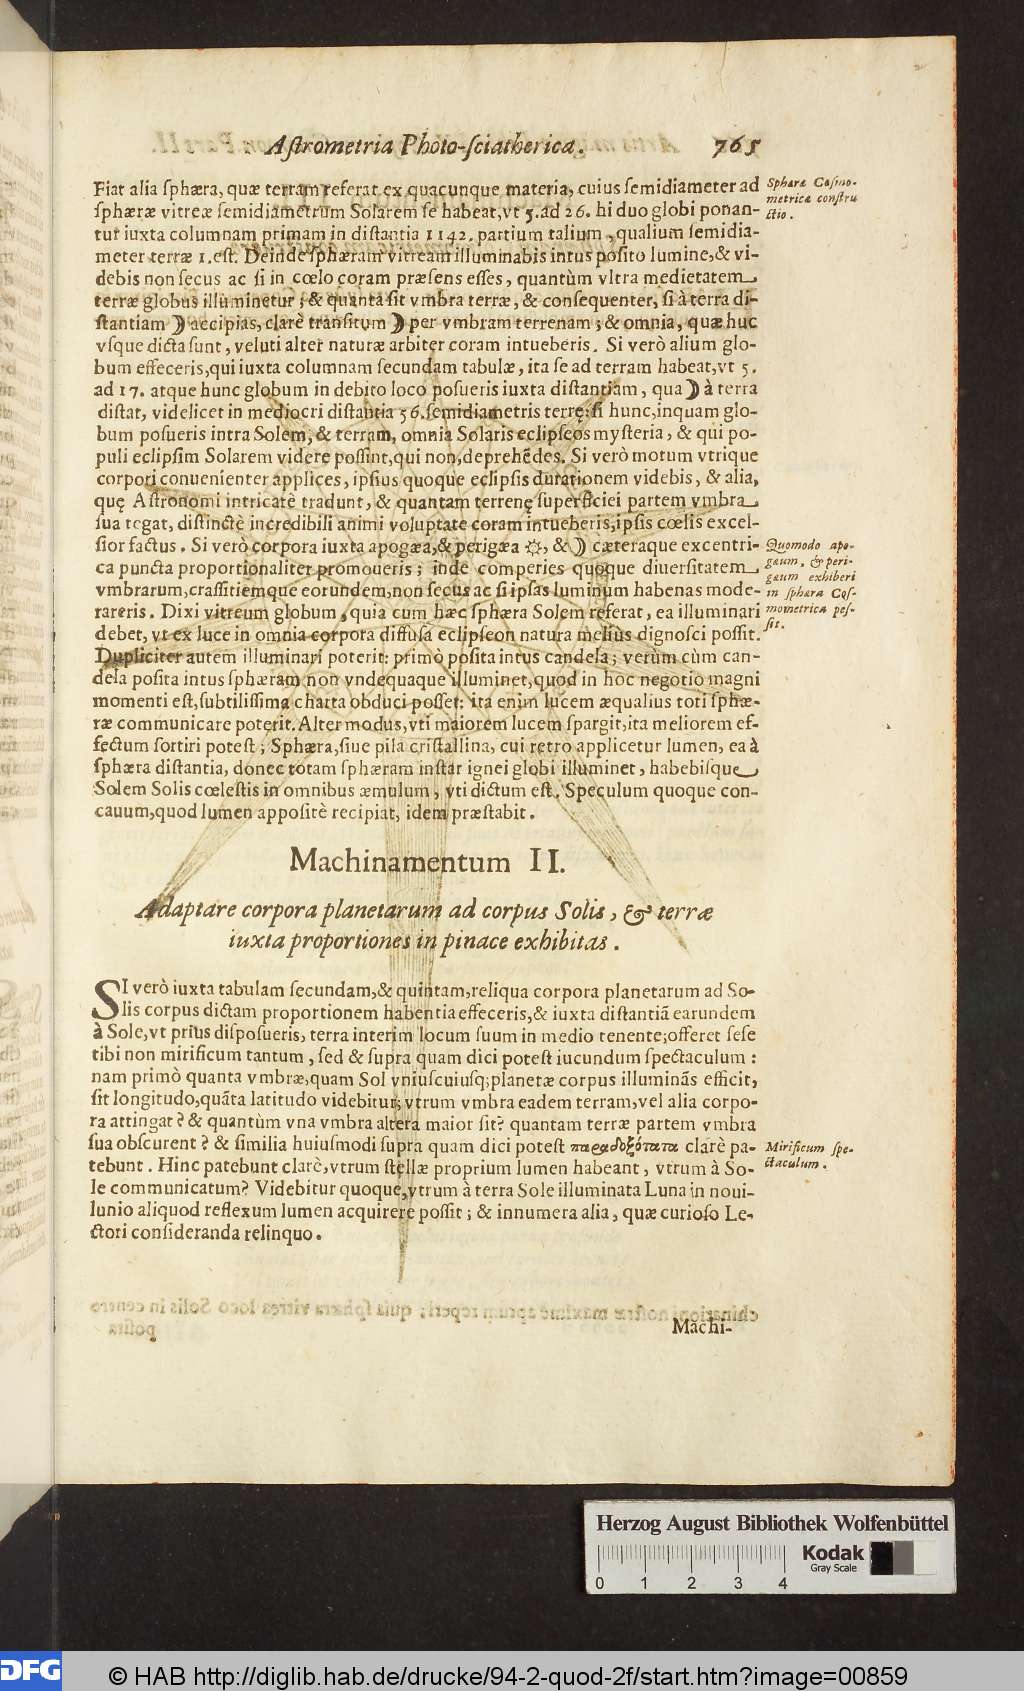 Astrometria Photo-sciatherica. 765
Fiat alia sphæra, quæ terram referat ex quacunque materia, cuius semidiameter ad
sphæræ vitreæ semidiametrum Solarem se habeat, vt 5. ad 26. hi duo globi ponan-
tur iuxta columnam primam in distantia 1142. partium talium, qualium semidia-
meter terræ 1. est. Deinde sphæram vitream illuminabis intus posito lumine, & vi-
debis non secus ac si in cœlo coram præsens esses, quantùm vltra medietatem
terræ globus illuminetur; & quanta sit vmbra terræ, & consequenter, si à terra di-
stantiam ☽ accipias, clarè transitum ☽ per vmbram terrenam; & omnia, quæ huc
vsque dicta sunt, veluti alter naturæ arbiter coram intueberis. Si verò alium glo-
bum effeceris, qui iuxta columnam secundam tabulæ, ita se ad terram habeat, vt 5.
ad 17. atque hunc globum in debito loco posueris iuxta distantiam, qua ☽ à terra
distat, videlicet in mediocri distantia 56. semidiametris terrę: si hunc, inquam glo-
bum posueris intra Solem, & terram, omnia Solaris eclipseos mysteria, & qui po-
puli eclipsim Solarem videre possint, qui non, deprehēdes. Si verò motum vtrique
corpori conuenienter applices, ipsius quoque eclipsis durationem videbis, & alia,
quę Astronomi intricatè tradunt, & quantam terrenę superficiei partem vmbra
sua tegat, distinctè incredibili animi voluptate coram intueberis, ipsis cœlis excel-
sior factus. Si verò corpora iuxta apogæa, & perigæa ☼, & ☽ cæteraque excentri-
ca puncta proportionaliter promoueris; inde comperies quoque diuersitatem
vmbrarum, crassitiemque eorundem, non secus ac si ipsas luminum habenas mode-
rareris. Dixi vitreum globum, quia cum hæc sphæra Solem referat, ea illuminari
debet, vt ex luce in omnia corpora diffusa eclipseon natura meliùs dignosci possit.
Dupliciter autem illuminari poterit: primò posita intus candela; verùm cùm can-
dela posita intus sphæram non vndequaque illuminet, quod in hoc negotio magni
momenti est, subtilissima charta obduci posset: ita enim lucem æqualius toti sphæ-
ræ communicare poterit. Alter modus, vti maiorem lucem spargit, ita meliorem ef-
fectum sortiri potest; Sphæra, siue pila cristallina, cui retro applicetur lumen, ea à
sphæra distantia, donec totam sphæram instar ignei globi illuminet, habebisque
Solem Solis cœlestis in omnibus æmulum, vti dictum est. Speculum quoque con-
cauum, quod lumen appositè recipiat, idem præstabit.
Sphæræ Cosmo-
metricæ constru
ctio.
Quomodo apo-
gæum, & peri-
gæum exhiberi
in sphæra Cos-
mometrica pos-
sit.
Machinamentum II.
Adaptare corpora planetarum ad corpus Solis, & terræ
iuxta proportiones in pinace exhibitas.
SI verò iuxta tabulam secundam, & quintam, reliqua corpora planetarum ad So-
lis corpus dictam proportionem habentia effeceris, & iuxta distantiā earundem
à Sole, vt prius disposueris, terra interim locum suum in medio tenente; offeret sese
tibi non mirificum tantum, sed & supra quam dici potest iucundum spectaculum:
nam primò quanta vmbræ, quam Sol vniuscuiusq; planetæ corpus illuminās efficit,
sit longitudo, quāta latitudo videbitur; vtrum vmbra eadem terram, vel alia corpo-
ra attingat? & quantùm vna vmbra altera maior sit? quantam terræ partem vmbra
sua obscurent? & similia huiusmodi supra quam dici potest παραδοξότατα clarè pa-
tebunt. Hinc patebunt clarè, vtrum stellæ proprium lumen habeant, vtrum à So-
le communicatum? Videbitur quoque, vtrum à terra Sole illuminata Luna in noui-
lunio aliquod reflexum lumen acquirere possit; & innumera alia, quæ curioso Le-
ctori consideranda relinquo.
Mirificum spe-
ctaculum.
Machi-
Herzog August Bibliothek Wolfenbüttel
Kodak
Gray Scale
0 1 2 3 4
DFG
© HAB http://diglib.hab.de/drucke/94-2-quod-2f/start.htm?image=00859